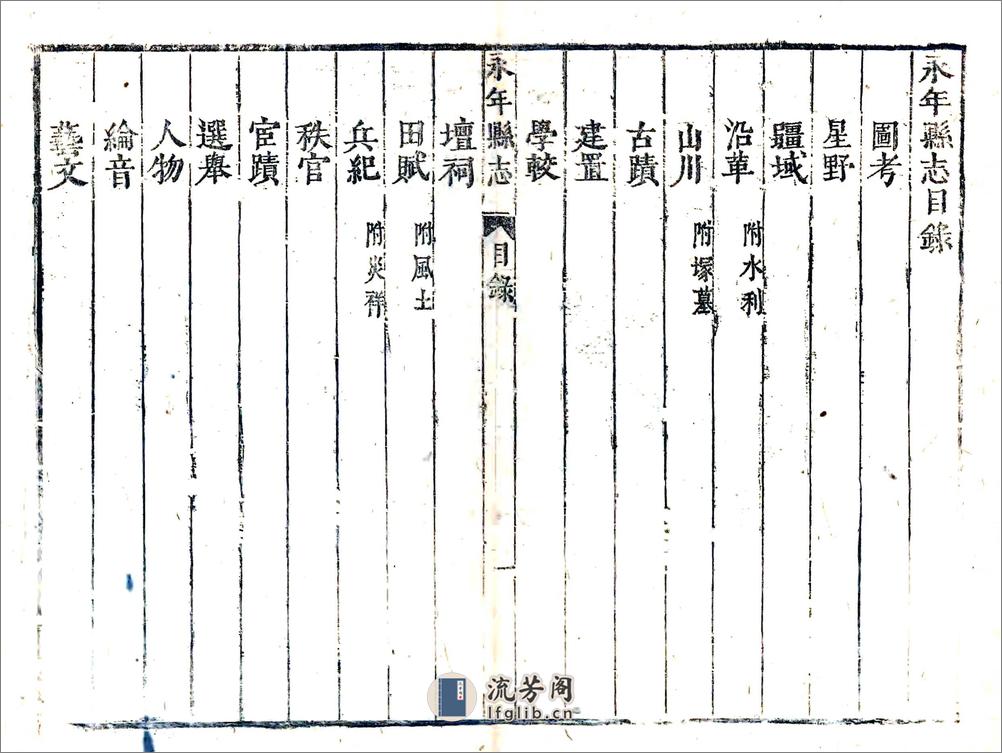 永年縣志目錄
圖考
星野
疆域
沿革 附水利
山川 附塚墓
古蹟
建置
學較
永年縣志 目錄 一
壇祠
田賦 附風土
兵紀 附災祥
秩官
宦蹟
選舉
人物
綸音
藝文
流芳阁
lfglib.cn